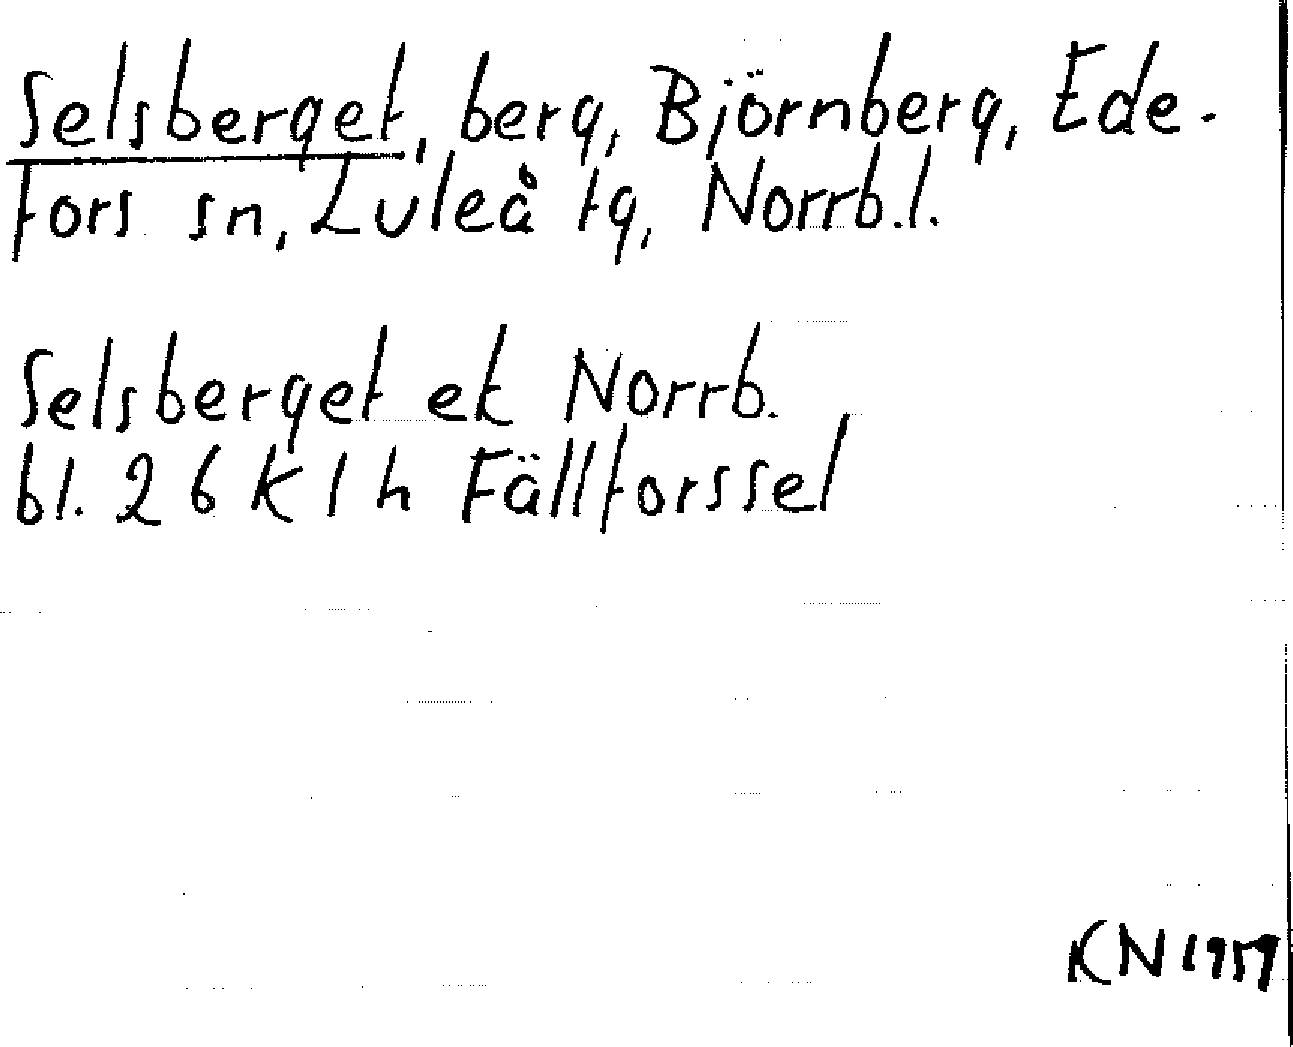 Selsberget, berg, Björnberg, Ede-
fors sn, Luleå tg, Norrb.l.
Selsberget ek Norrb.
bl. 26 K 1 h Fällforssel
KN 1959